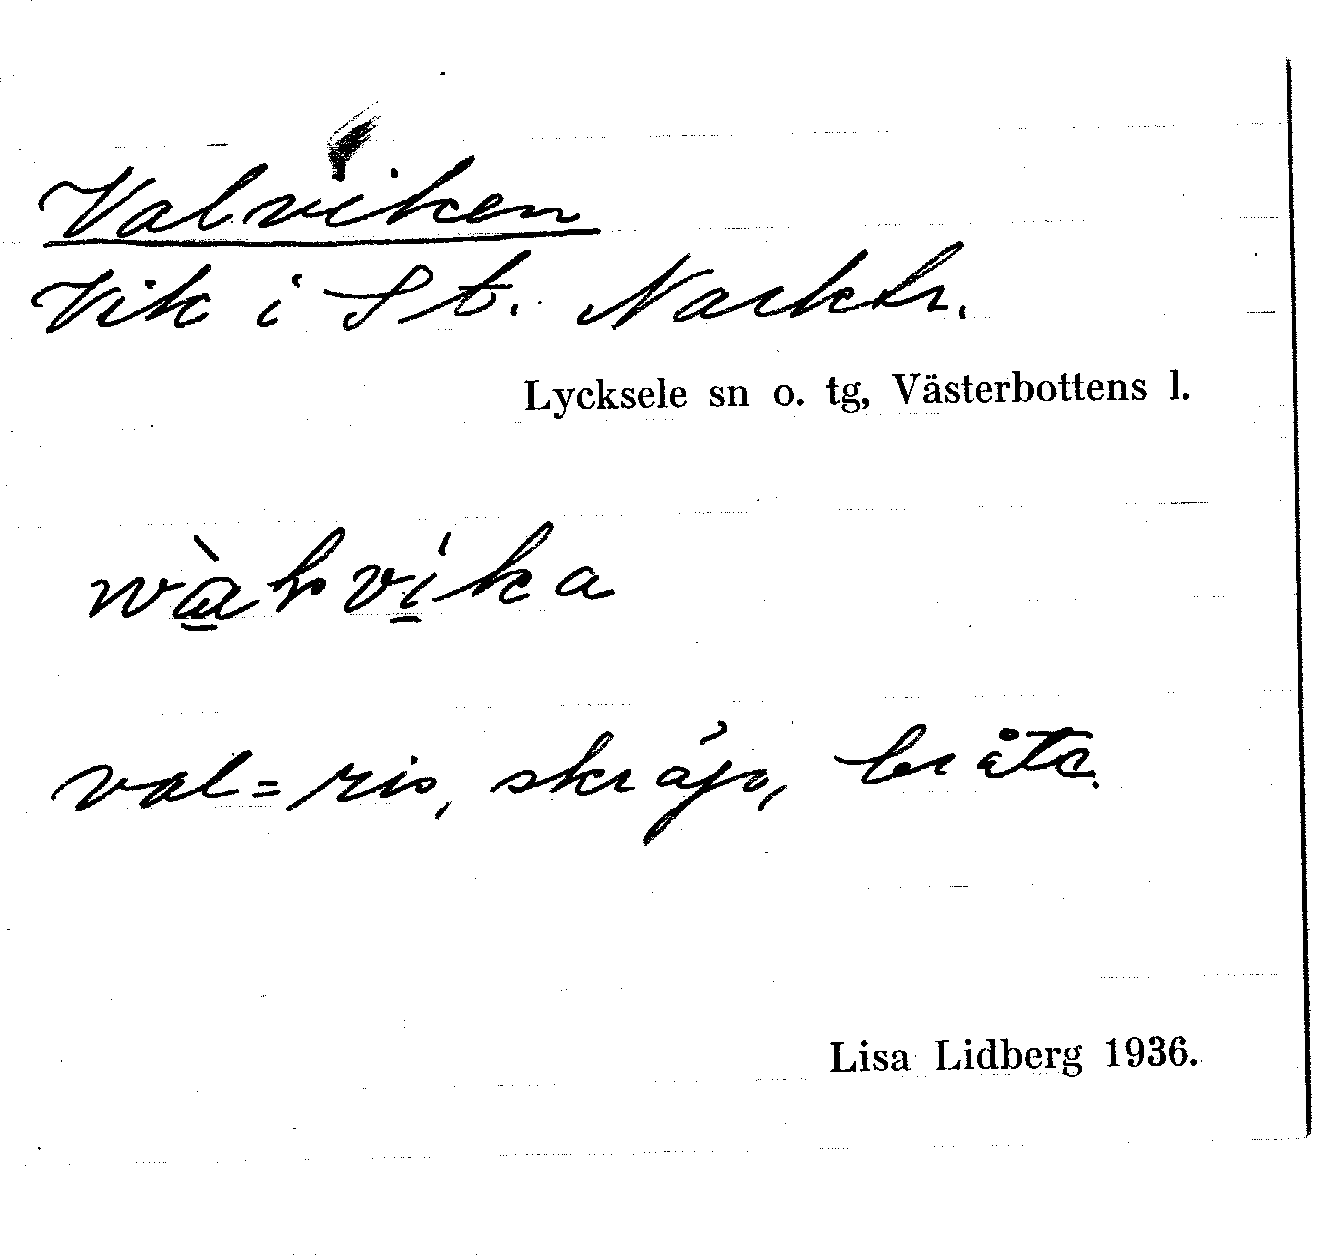 Valviken
Vik i St. Narktr.
Lycksele sn o. tg, Västerbottens l.
val = ris, skräp, bråte.
Lisa Lidberg 1936.